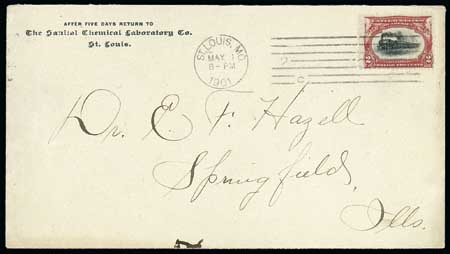 AFTER FIVE DAYS RETURN TO
The Sanitol Chemical Laboratory Co.
St. Louis.
ST. LOUIS, MO.
MAY 1
8-PM
1901
Dr. E. F. Hazell
Springfield,
Ills.